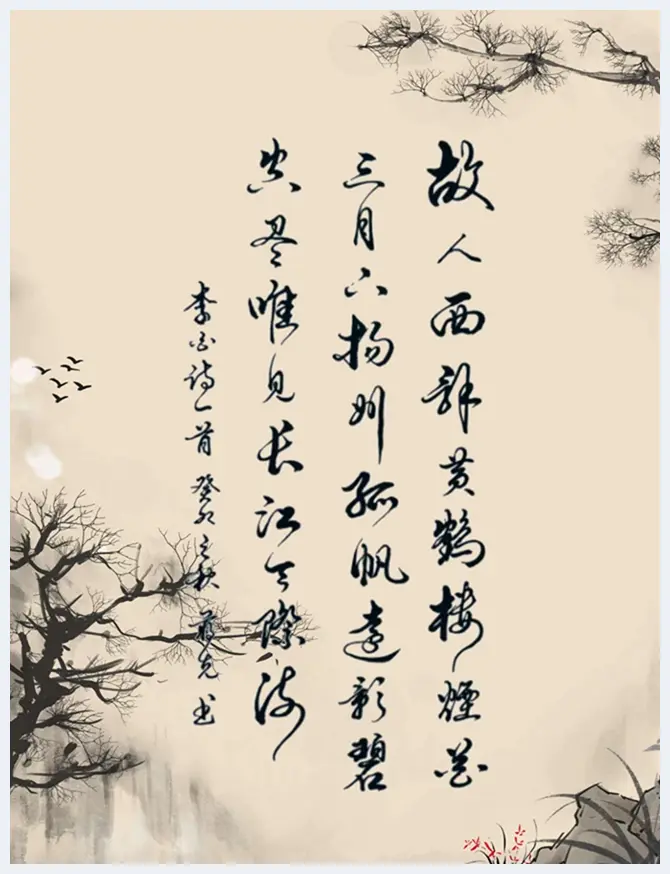 故人西辞黄鹤楼煙花
三月下扬州孤帆遠影碧
空尽唯見长江天際流
李白诗一首 癸卯之秋 书